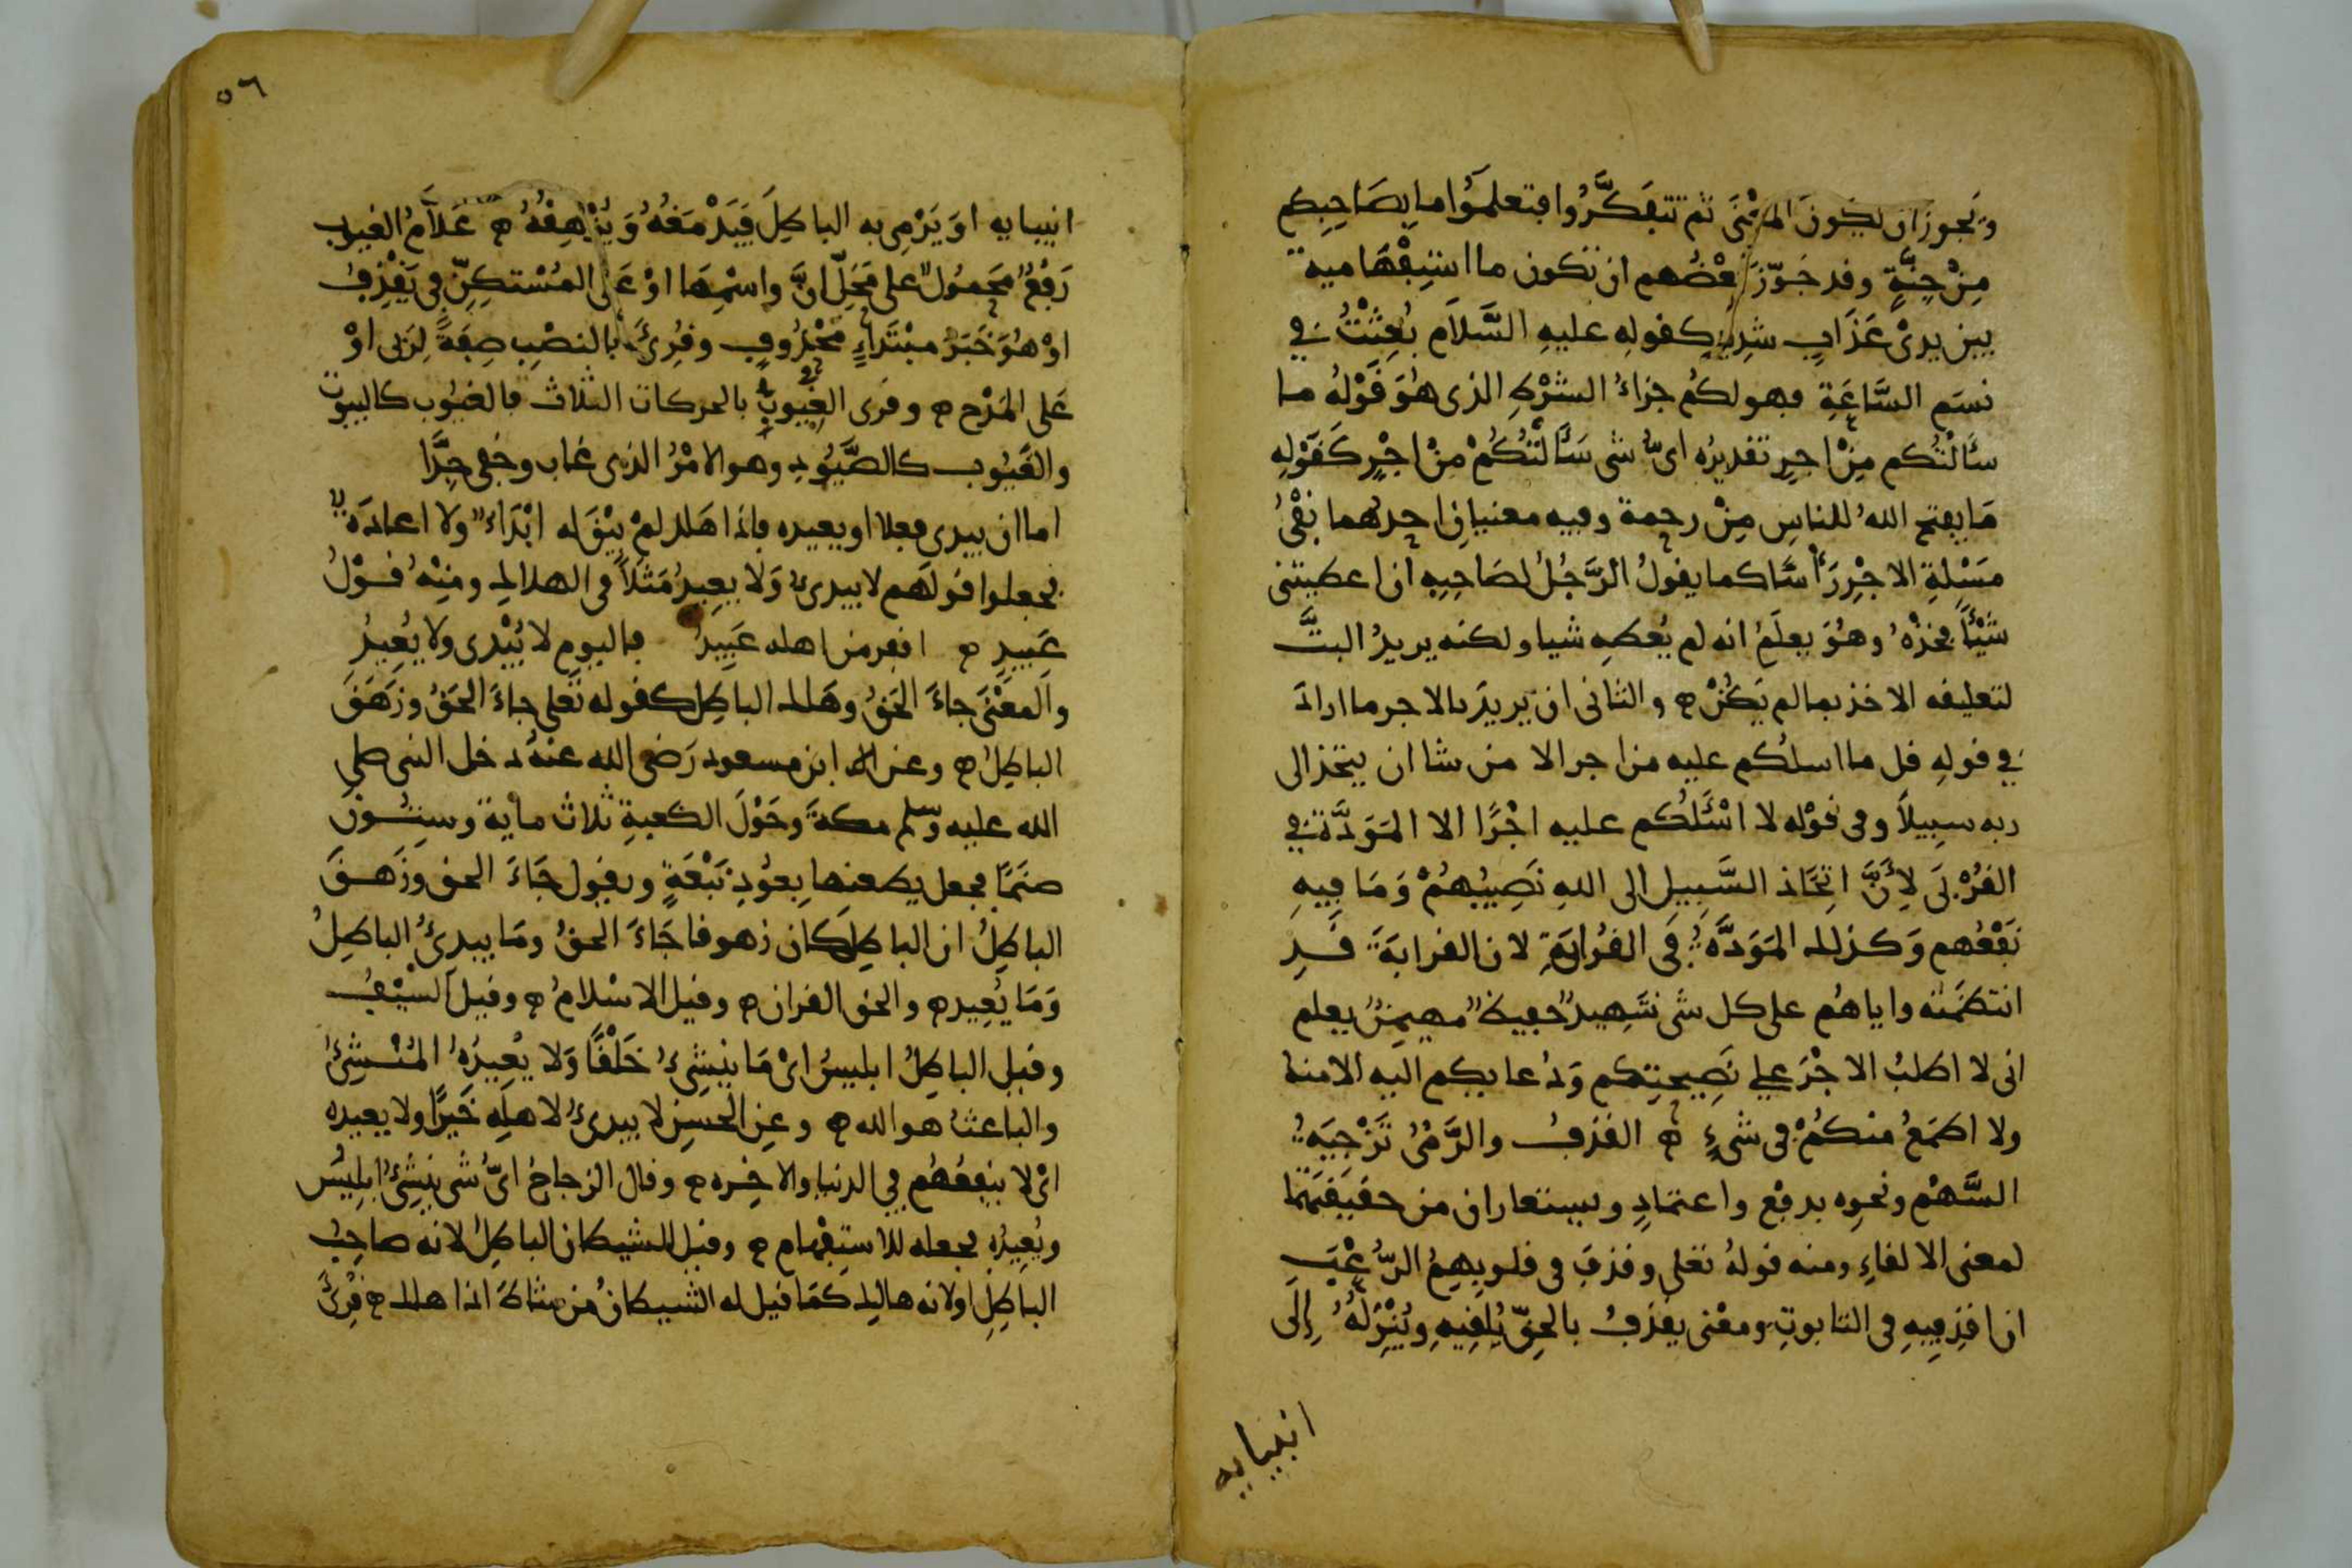 ويجوز ان يكون المعنى ثم تتفكّروا فتعلموا ما بصاحبكم
من جنّةٍ وقد جوّز بعضهم ان تكون ما استفهامية
بين يدى عذابٍ شديد كقوله عليه السّلام بُعِثْتُ في
نسم السّاعة فهو لكم جزاء الشرط الذى هو قوله ما
سألتكم من اجر تقديره اىّ شى سألتكم من اجر كقوله
ما يفتح الله للناس من رحمة وفيه معنيان احدهما نفى
مسلة الاجر رأسا كما يقول الرّجل لصاحبه ان اعطيتنى
شيْئًا فخذه وهو يعلم انه لم يعطه شيا ولكنه يريد البتّ
لتعليقه الاخذ بما لم يكن ه والثانى ان يريد بالاجر ما اراد
في قوله قل ما اسلكم عليه من اجر الا من شا ان يتخذ الى
ربه سبيلاً وفى قوله لا اسْئلكم عليه اجْرًا الا المودّة في
القربى لأنّ اتخاذ السّبيل الى الله نصيبهم وما فيه
نفعهم وكذلك المودّة فى القرابة لان القرابة قد
انتظمته واياهم على كل شى شهيد حفيظ مهيمن يعلم
انى لا اطلب الاجر على نصيحتكم ودعايكم اليه الا منه
ولا اطمع منكم فى شىءٍ ه القذف والرّمى تزجية
السّهم ونحوه بدفع واعتمادٍ ويستعاران من حقيقتهما
لمعنى الالقاء ومنه قوله تعلى وقذف فى قلوبهم الرّعب
ان اقذفيه فى التابوت ومعنى يقذف بالحقّ يلقيه وينزله إلى
انبيايه
٥٦
انبيايه او يرمى به الباطل فيدمغه ويزهقه ه علاّم الغيوب
رفع محمول على محلّ انّ واسمها او على المستكنّ فى يقذف
او هو خبر مبتداءٍ محذوف وقرئ بالنصب صفةً لربى او
على المدح ه وقرى الغيوب بالحركات الثلاث فالغيوب كالبيوت
والغيوب كالصّيود وهو الامر الذى غاب وخفى جدًّا
اما ان يبدى فعلا او يعيده فاذا هلك لم يبق له ابداء ولا اعادة
فجعلوا قولهم لا يبدئ ولا يعيد مثلاً فى الهلاك ومنه قول
عبيد ه اقفر من اهله عبيد فاليوم لا يبدى ولا يعيد
والمعنى جاء الحق وهلك الباطل كقوله تعلى جاء الحق وزهق
الباطل ه وعن ابن مسعود رضى الله عنه دخل النبى صلى
الله عليه وسلم مكة وحول الكعبة ثلاث ماية وستون
صنمًا فجعل يطعنها بعود نبعةٍ ويقول جاء الحق وزهق
الباطل ان الباطل كان زهوقا جاء الحق وما يبدئ الباطل
وما يعيد ه والحق القران ه وقيل الاسلام ه وقيل السيف
وقيل الباطل ابليس اى ما ينشئ خلقًا ولا يعيده المنشئ
والباعث هو الله ه وعن الحسن لا يبدئ لاهله خيرًا ولا يعيده
اى لا ينفعهم في الدنيا والاخره ه وقال الزجاج اىّ شى ينشئ ابليس
ويعيده فجعله للاستفهام ه وقيل للشيطان الباطل لانه صاحب
الباطل اولانه هالك كما قيل له الشيطان من شاط اذا هلك ه قرئ